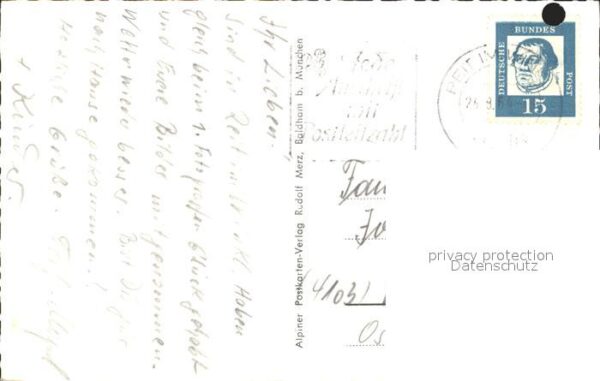 Ihr Lieben,
Sind in Reit im Winkl. Haben
gleich beim 1. Fotografen Glück gehabt
und Eure Bilder mitgenommen.
Wetter wieder besser. Bist Du gut
nach Hause gekommen?
Herzliche Grüße.
+ Kinder.
Alpiner Postkarten-Verlag Rudolf Merz, Baldham b. München
In jede
Anschrift
die
Postleitzahl
REIT IM WINKL
DEUTSCHE
BUNDES
POST
15
Fam
Jo
(4103)
Os
privacy protection
Datenschutz